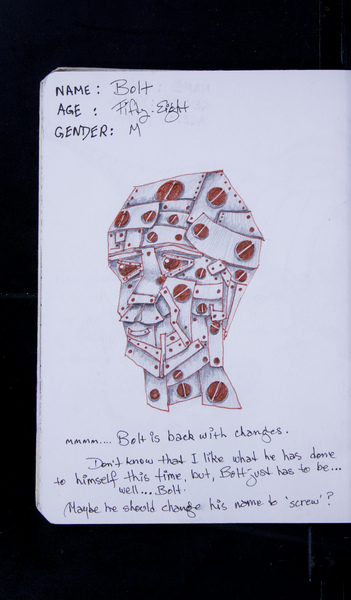 NAME: Bolt
AGE : Fifty.Eight
GENDER: M
mmmm.... Bolt is back with changes.
Don't know that I like what he has done
to himself this time, but, Bolt just has to be...
well... Bolt.
(Maybe he should change his name to 'screw'?